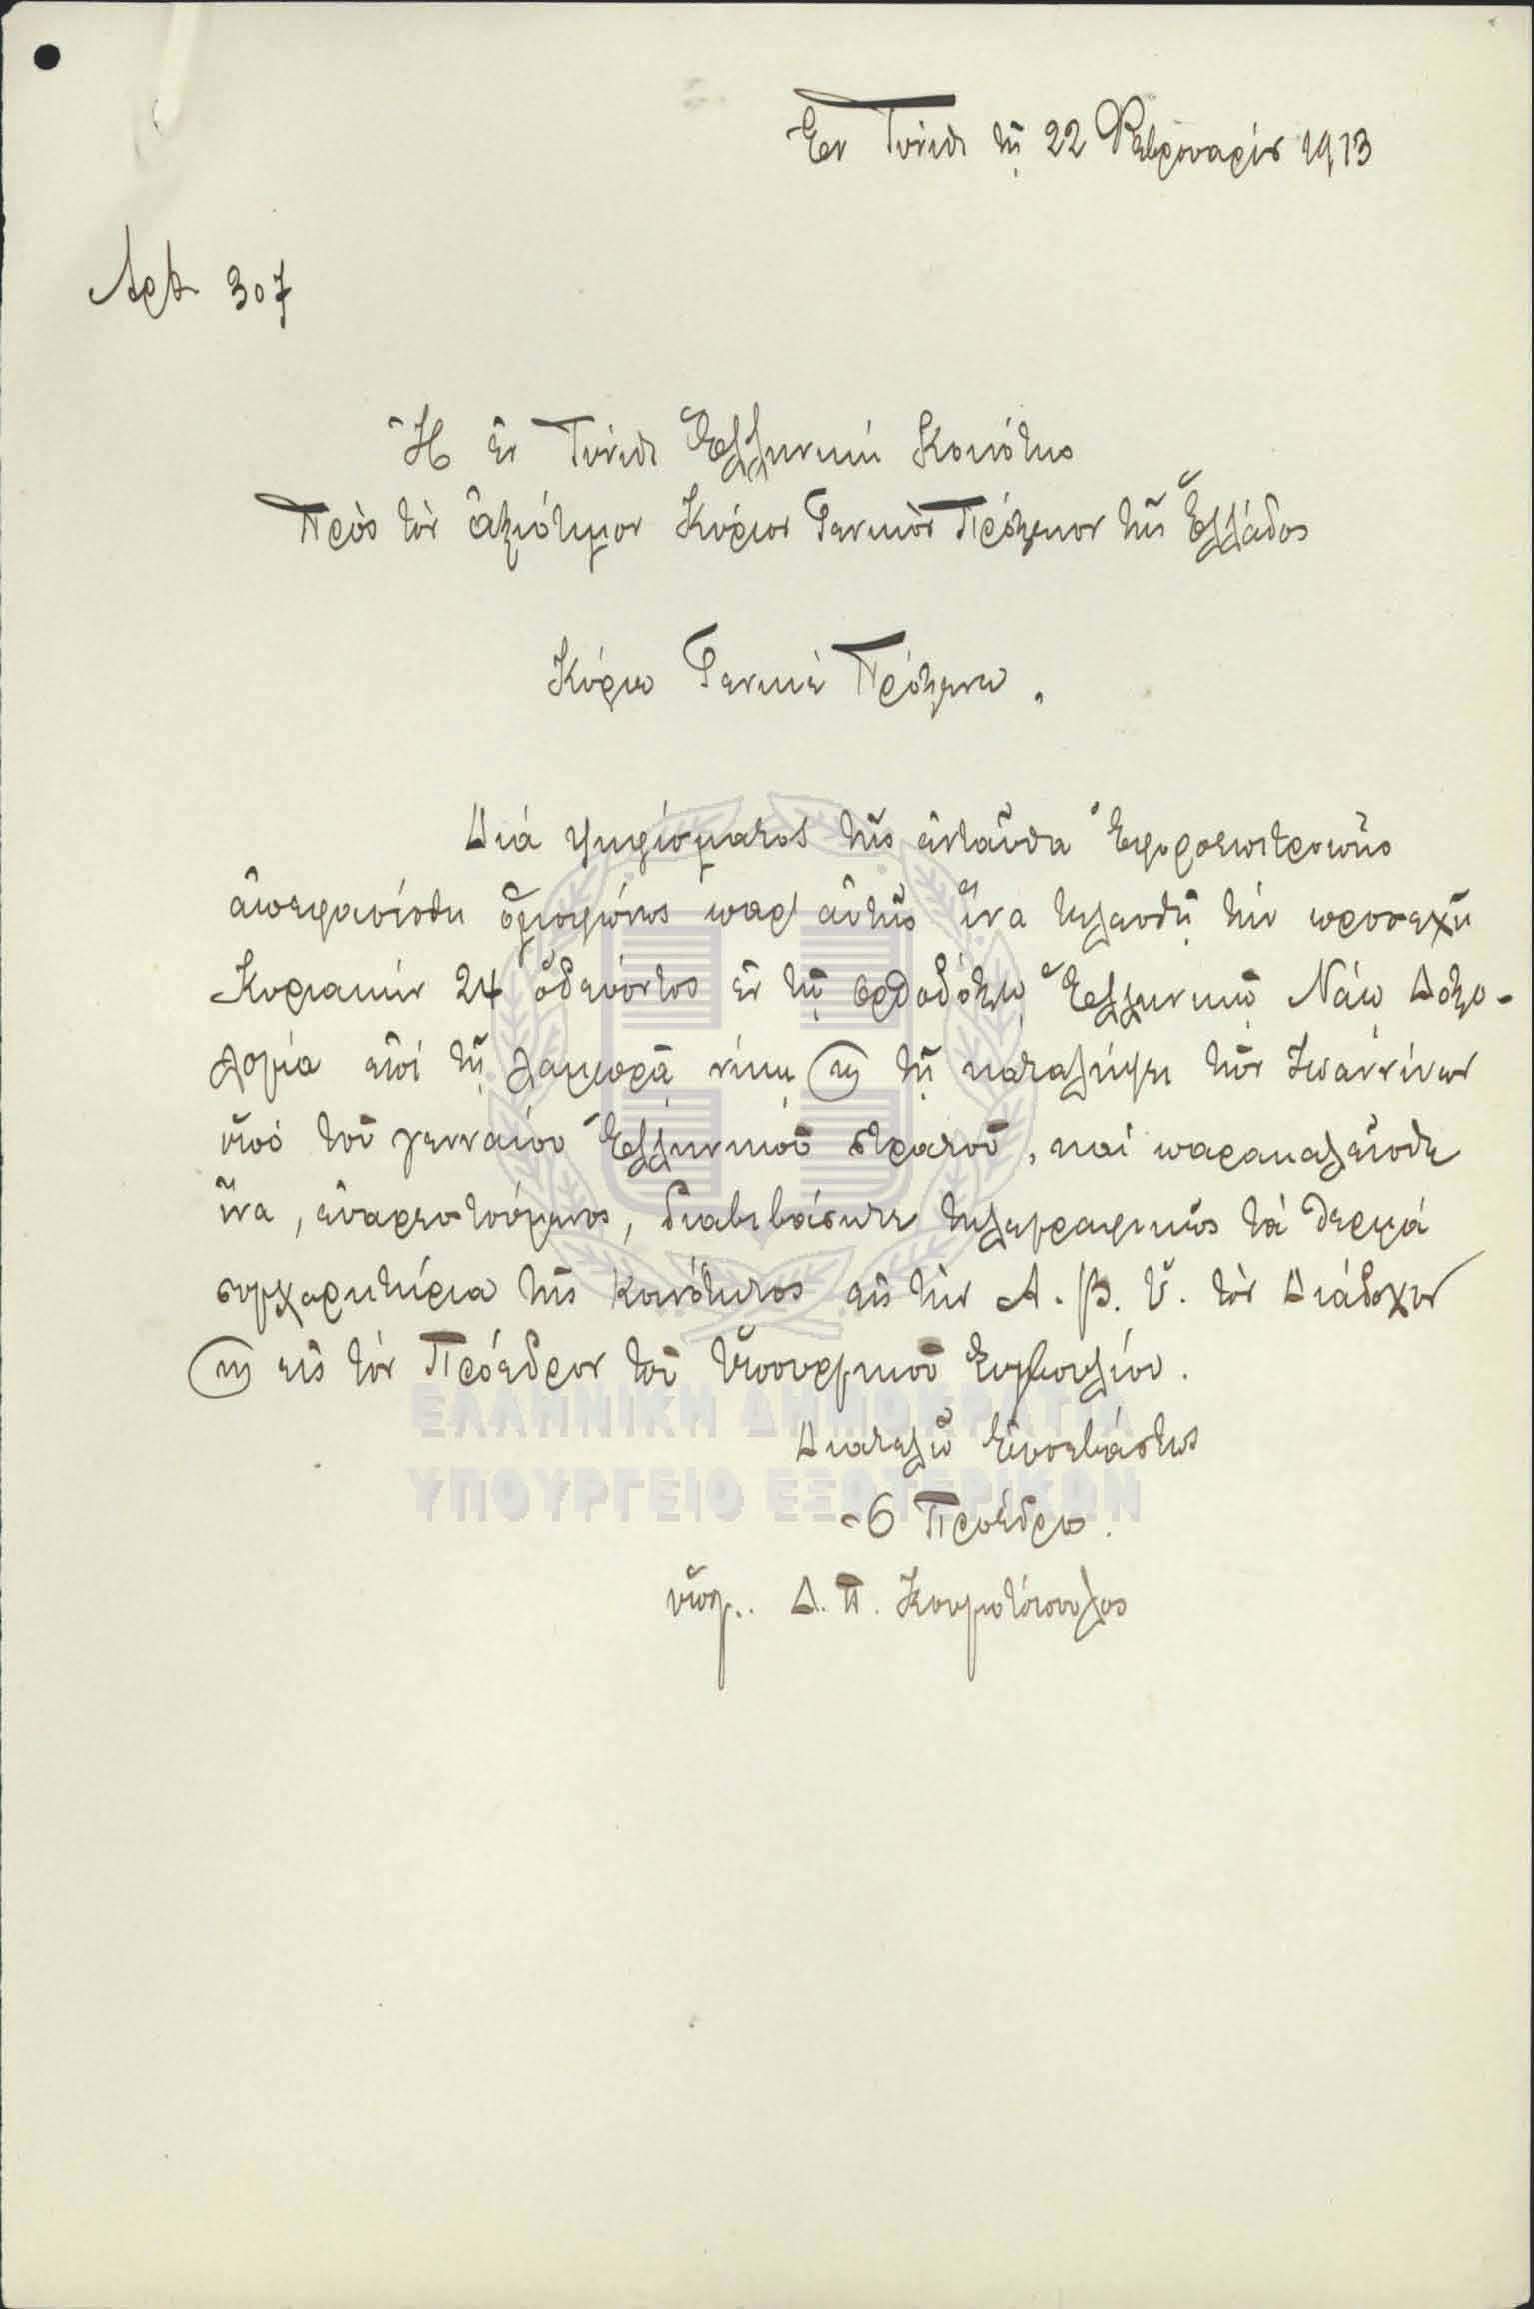 Ἐν Τύνιδι τῇ 22 Φεβρουαρίου 1913
Ἀρθ. 307
Ἡ ἐν Τύνιδι Ἑλληνικὴ Κοινότης
Πρὸς τὸν ἀξιότιμον Κύριον Γενικὸν Πρόξενον τῆς Ἑλλάδος
Κύριε Γενικὲ Πρόξενε,
Διὰ ψηφίσματος τῆς ἐνταῦθα Ἐφοροεπιτροπῆς
ἀπεφασίσθη ὁμοφώνως παρ' αὐτῆς ἵνα τελεσθῇ τὴν προσεχῆ
Κυριακὴν 24 ὁδεύοντος ἐν τῷ ὀρθοδόξῳ Ἑλληνικῷ Ναῷ Δοξο-
λογία ἐπὶ τῇ λαμπρᾷ νίκῃ κ τῇ καταλήψει τῶν Ἰωαννίνων
ὑπὸ τοῦ γενναίου Ἑλληνικοῦ στρατοῦ, καὶ παρακαλεῖσθε
ἵνα, εὐαρεστούμενος, διαβιβάσητε τηλεγραφικῶς τὰ θερμὰ
συγχαρητήρια τῆς Κοινότητος εἰς τὴν Α. Β. Υ. τὸν Διάδοχον
κ εἰς τὸν Πρόεδρον τοῦ Ὑπουργικοῦ Συμβουλίου.
Διατελῶ Εὐσεβάστως
Ὁ Πρόεδρος.
ὑπογ. Δ. Π.
ΕΛΛΗΝΙΚΗ ΔΗΜΟΚΡΑΤΙΑ
ΥΠΟΥΡΓΕΙΟ ΕΞΩΤΕΡΙΚΩΝ